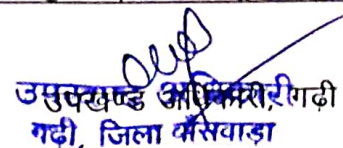 उपखण्ड अधिकारी, गढ़ी
गढ़ी, जिला बाँसवाड़ा